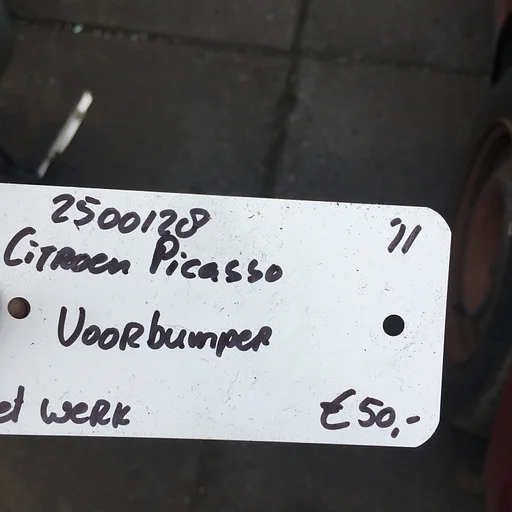 2500128
Citroen Picasso
Voorbumper
werk € 50,-